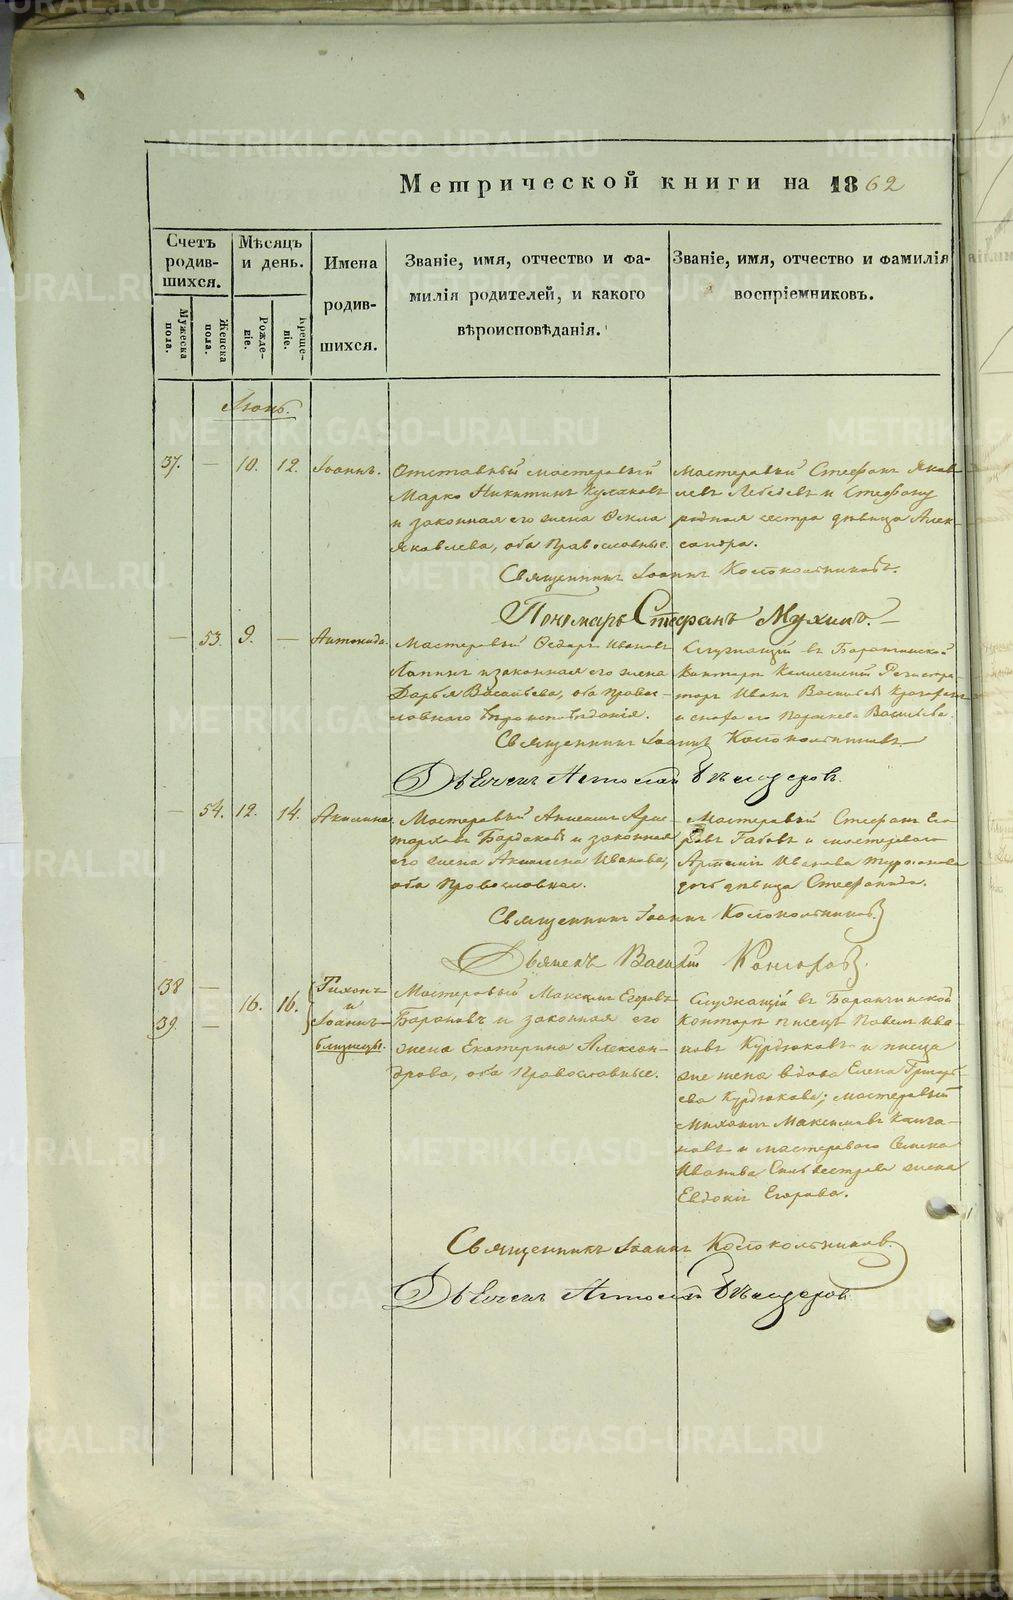 Метрической книги на 1862
Счетъ родив-шихся.
Мѣсяцъ и день.
Имена родив-шихся.
Званіе, имя, отчество и фа-
милія родителей, и какого
вѣроисповѣданія.
Званіе, имя, отчество и фамилія
воспріемниковъ.
Мужеска пола.
Женска пола.
Рожде-ніе.
Креще-ніе.
Іюнь.
37. — 10. 12. Іоаннъ.
Отставный мастеровый
Марко Никитинъ Кулаковъ
и законная его жена Ѳекла
Яковлева, оба Православные.
Мастеровый Стефанъ Яков
левъ Лебедевъ и Стефану
родная сестра дѣвица Алек-
сандра.
Священникъ Іоаннъ Колокольниковъ.
Пономарь Стефанъ Мухинъ.
— 53. 9. —
Мастеровый Ѳедоръ Ивановъ
Лапинъ и законная его жена
Дарья Васильева, оба правос-
славнаго вѣроисповѣданія.
Служащій въ Баранчинской
Конторѣ Коллежскій Регистра-
торъ Иванъ Васильевъ
и сноха его Параскева Васильева.
Священникъ Іоаннъ Колокольниковъ.
— 54. 12. 14. Акилина.
Мастеровый Аникин Арис-
тарховъ и законная
его жена Акилина Иванова,
оба Православные.
Мастеровый Стефанъ Его
ровъ и мастероваго
Иванова
дочь дѣвица Стефанида.
Священникъ Іоаннъ Колокольниковъ
Дьячекъ Василій
38 —
39. —
16. 16.
Тихонъ
и
Іоаннъ
близнецы.
Мастеровый Максимъ Егоровъ
Барановъ и законная его
жена Екатерина Алексан-
дрова, оба Православные.
Служащій въ Баранчинской
Конторѣ писецъ Павелъ Ива-
новъ Курдюковъ и писца
же жена вдова Елена Григорь-
ева Курдюкова; мастеровый
Михаилъ Максимовъ
новъ и мастероваго Семена
Иванова Сильвестрова жена
Евдокія Егорова.
Священникъ Іоаннъ Колокольниковъ.
METRIKI.GASO-URAL.RU